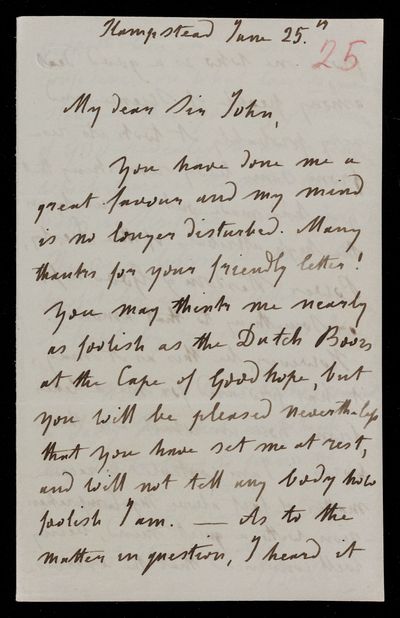 Hampstead June 25.th
25
My dear Sir John,
You have done me a
great favour and my mind
is no longer disturbed. Many
thanks for your friendly letter!
You may think me nearly
as foolish as the Dutch Boors
at the Cape of Good hope, but
you will be pleased nevertheless
that you have set me at rest,
and will not tell any body how
foolish I am. — As to the
matter in question, I heard it